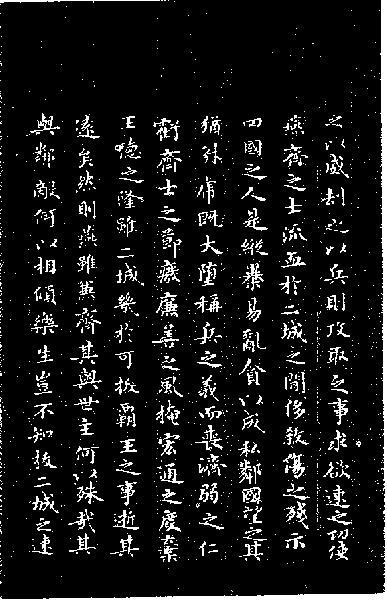 之以威刦之以兵則攻取之事求欲速之功使
燕齊之士流血於二城之間侈殺傷之殘示
四國之人是縱暴易亂貪以成私鄰國望之其
猶豺虎既大墮稱兵之義而喪濟弱之仁
虧齊士之節癈廉善之風掩宏通之度棄
王德之隆雖二城幾於可拔霸王之事逝其
遠矣然則燕雖兼齊其與世主何以殊哉其
與鄰敵何以相傾樂生豈不知拔二城之速